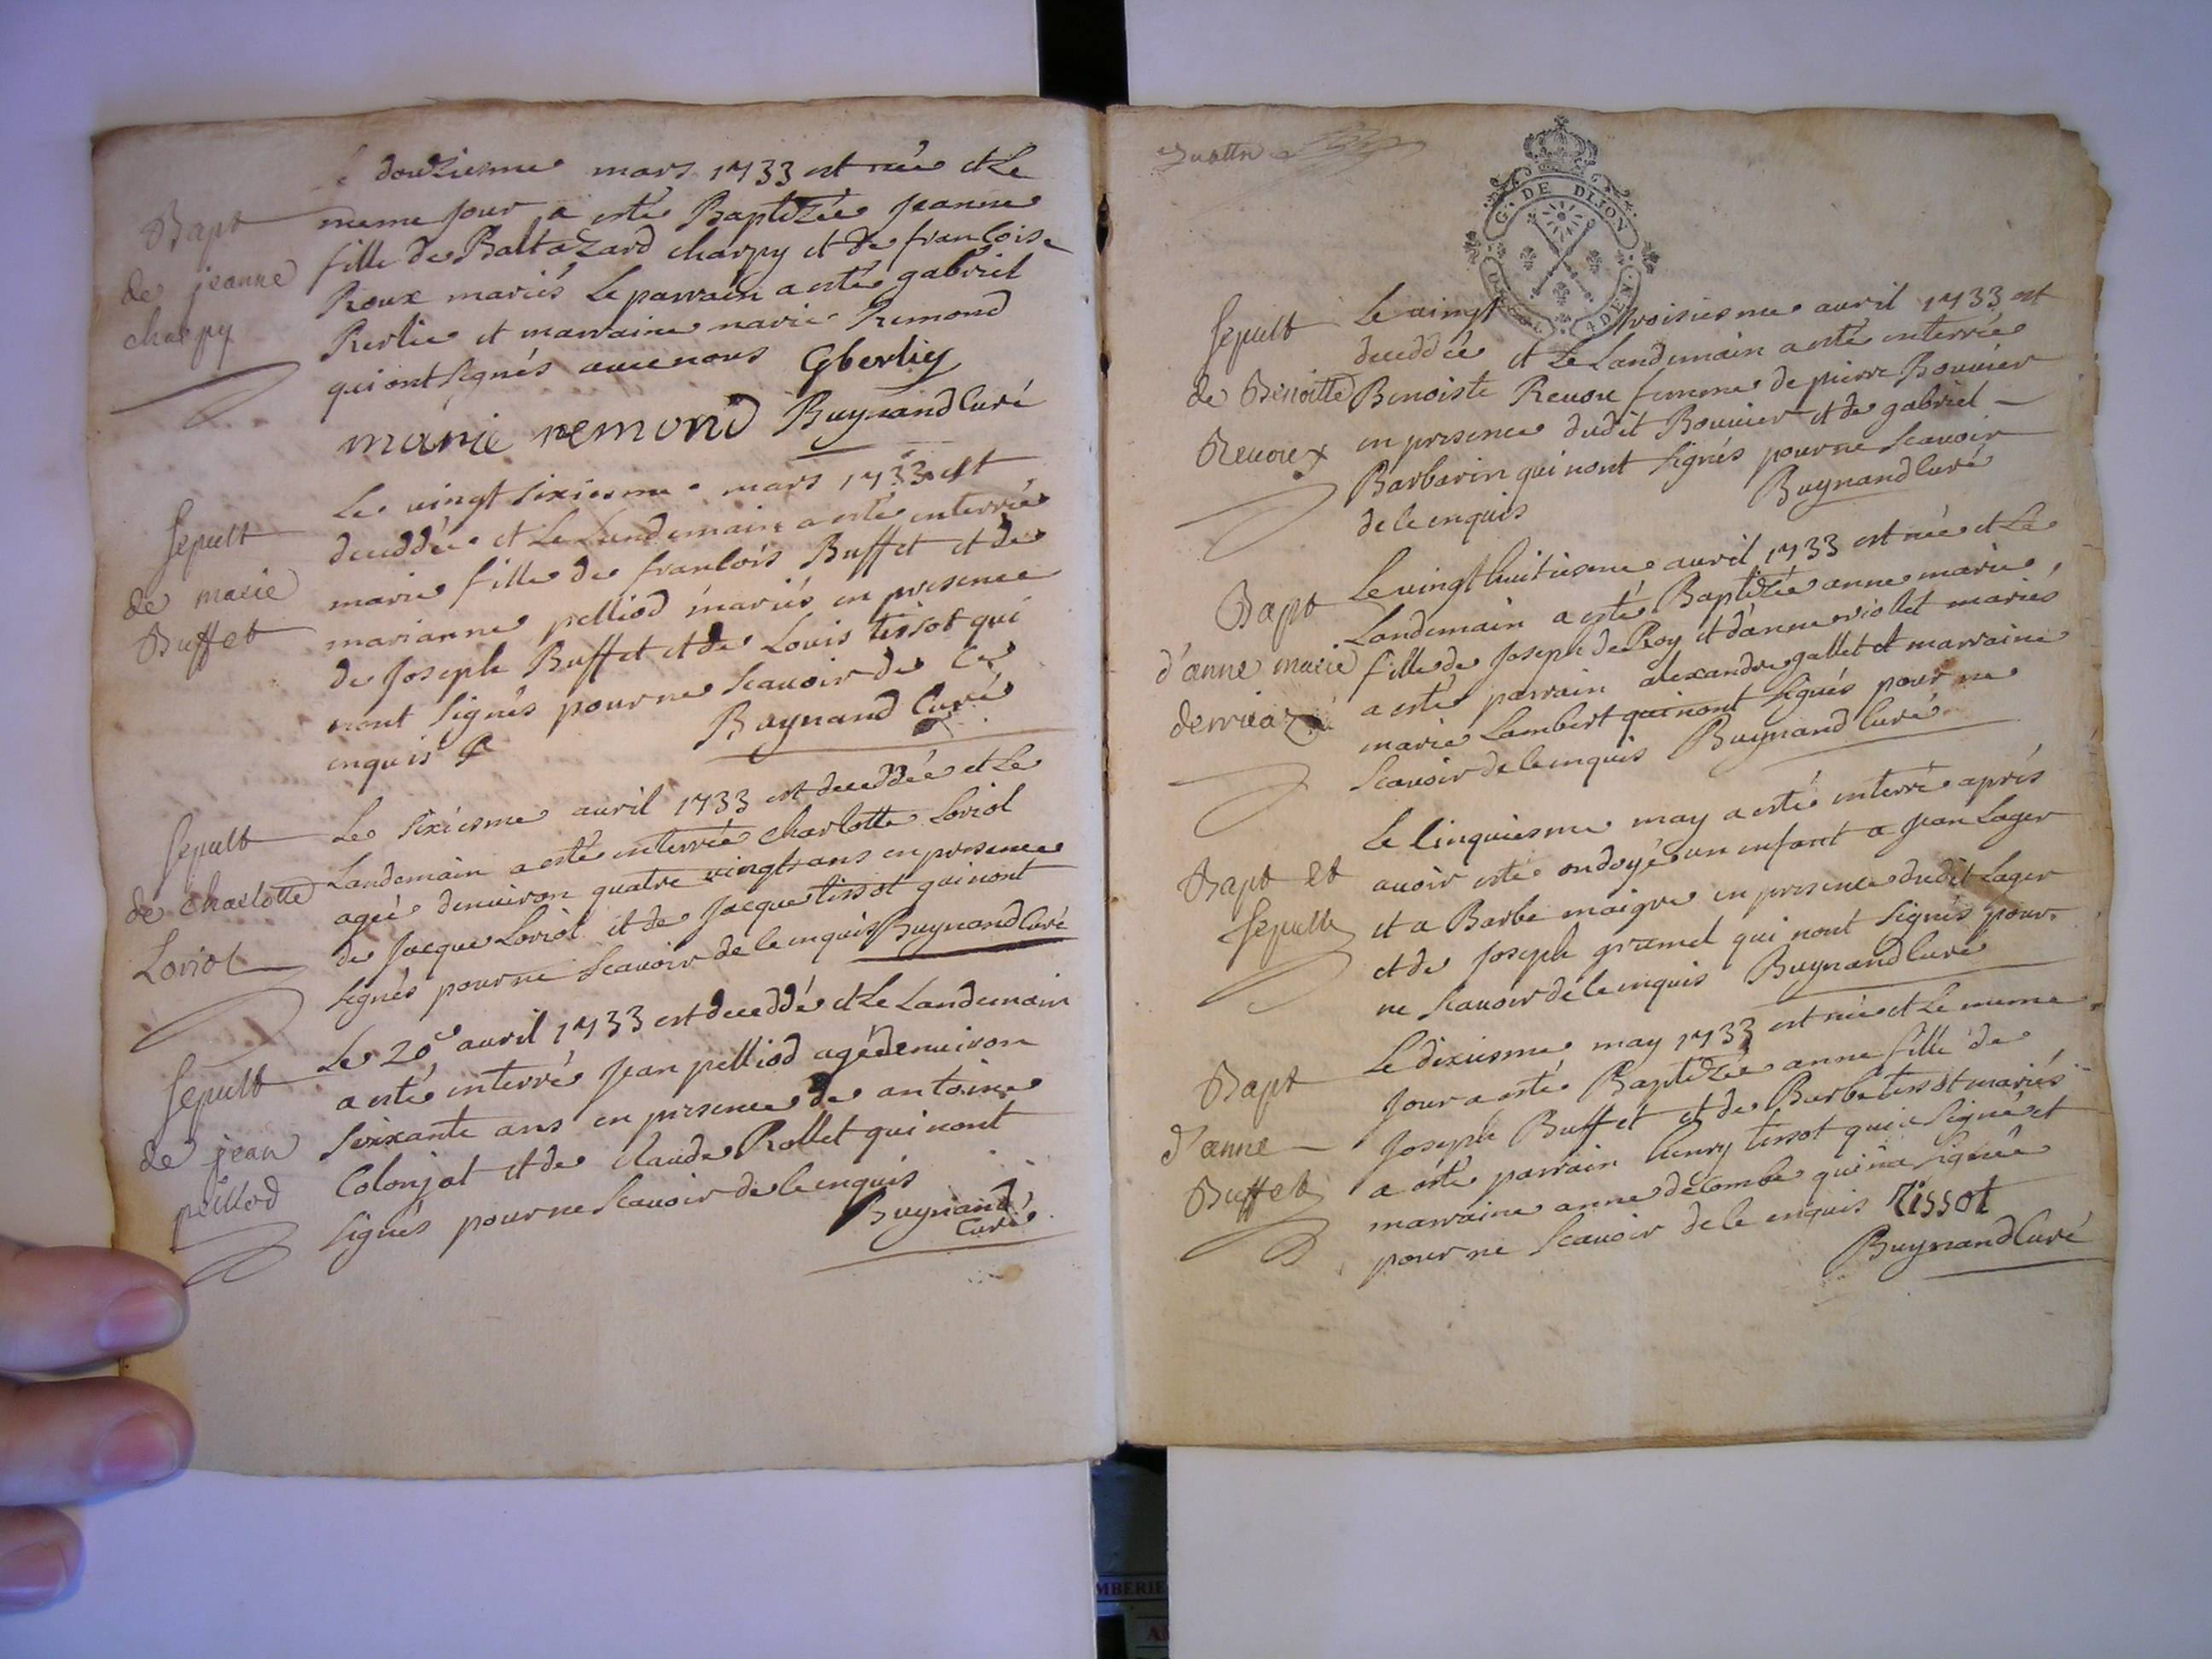 Bapt
de jeanne
charpy
douziesme mars 1733 est née et Le
meme Jour a esté Baptizée Jeanne
fille de Baltazard charpy et de francoise
Roux mariés Le parrain a esté gabriel
et marraine marie Remond
qui ont signés avec nous
marie remond Buynand Curé
sepult
de marie
Buffet
Le vingt sixiesme mars 1733 est
deceddée et Le Landemain a esté enterrée
marie fille de francois Buffet et de
marianne pelliod mariés en presence
de Joseph Buffet et de Louis tissot qui
nont signés pour ne scauoir de ce
enquis Buynand Curé
sepult
de charlotte
Loriol
Le sixiesme auril 1733 est deceddée et Le
Landemain a esté enterrée charlotte Loriol
ageé denuiron quatre vingt ans en presence
de Jacque Loriol et de Jacque tissot qui nont
signés pour ne scauoir de ce enquis Buynand Curé
sepult
de jean
pelliod
Le 20e auril 1733 est deceddé et Le Landemain
a esté enterré Jean pelliod agé denuiron
soixante ans en presence de antoine
Colonjat et de claude Rollet qui nont
signés pour ne scauoir de ce enquis
Buynand
Curé
quattre
G. DE DIJON
4 DEN.
sepult
de Benoitte
Reuoux
Le vingt troisiesme auril 1733 est
deceddée et Le Landemain a esté enterrée
Benoiste Reuoux femme de pierre Bouuier
en presence dudit Bouuier et de gabriel
Barbarin qui nont signés pour ne scauoir
de ce enquis Buynand Curé
Bapt
d'anne marie
Le vingt huitiesme auril 1733 est née et Le
Landemain a esté Baptizée anne marie
fille de Joseph de Roy et d'anne violet mariés
a esté parrain alexandre gallet et marraine
marie Lambert qui nont signés pour ne
scauoir de ce enquis Buynand Curé
Bapt et
sepult
Le cinquiesme may a esté enterré aprés
auoir esté ondoyé un enfant a Jean Lager
et a Barbe maigre en presence dudit Lager
et de Joseph gramel qui nont signés pour
ne scauoir de ce enquis Buynand Curé
Bapt
d'anne
Buffet
Le dixiesme may 1733 est née et Le meme
Jour a esté Baptizée anne fille de
Joseph Buffet et de Barbe tissot mariés
a esté parrain henry tissot qui a signé et
marraine anne decombe qui na signée
pour ne scauoir de ce enquis Tissot
Buynand Curé